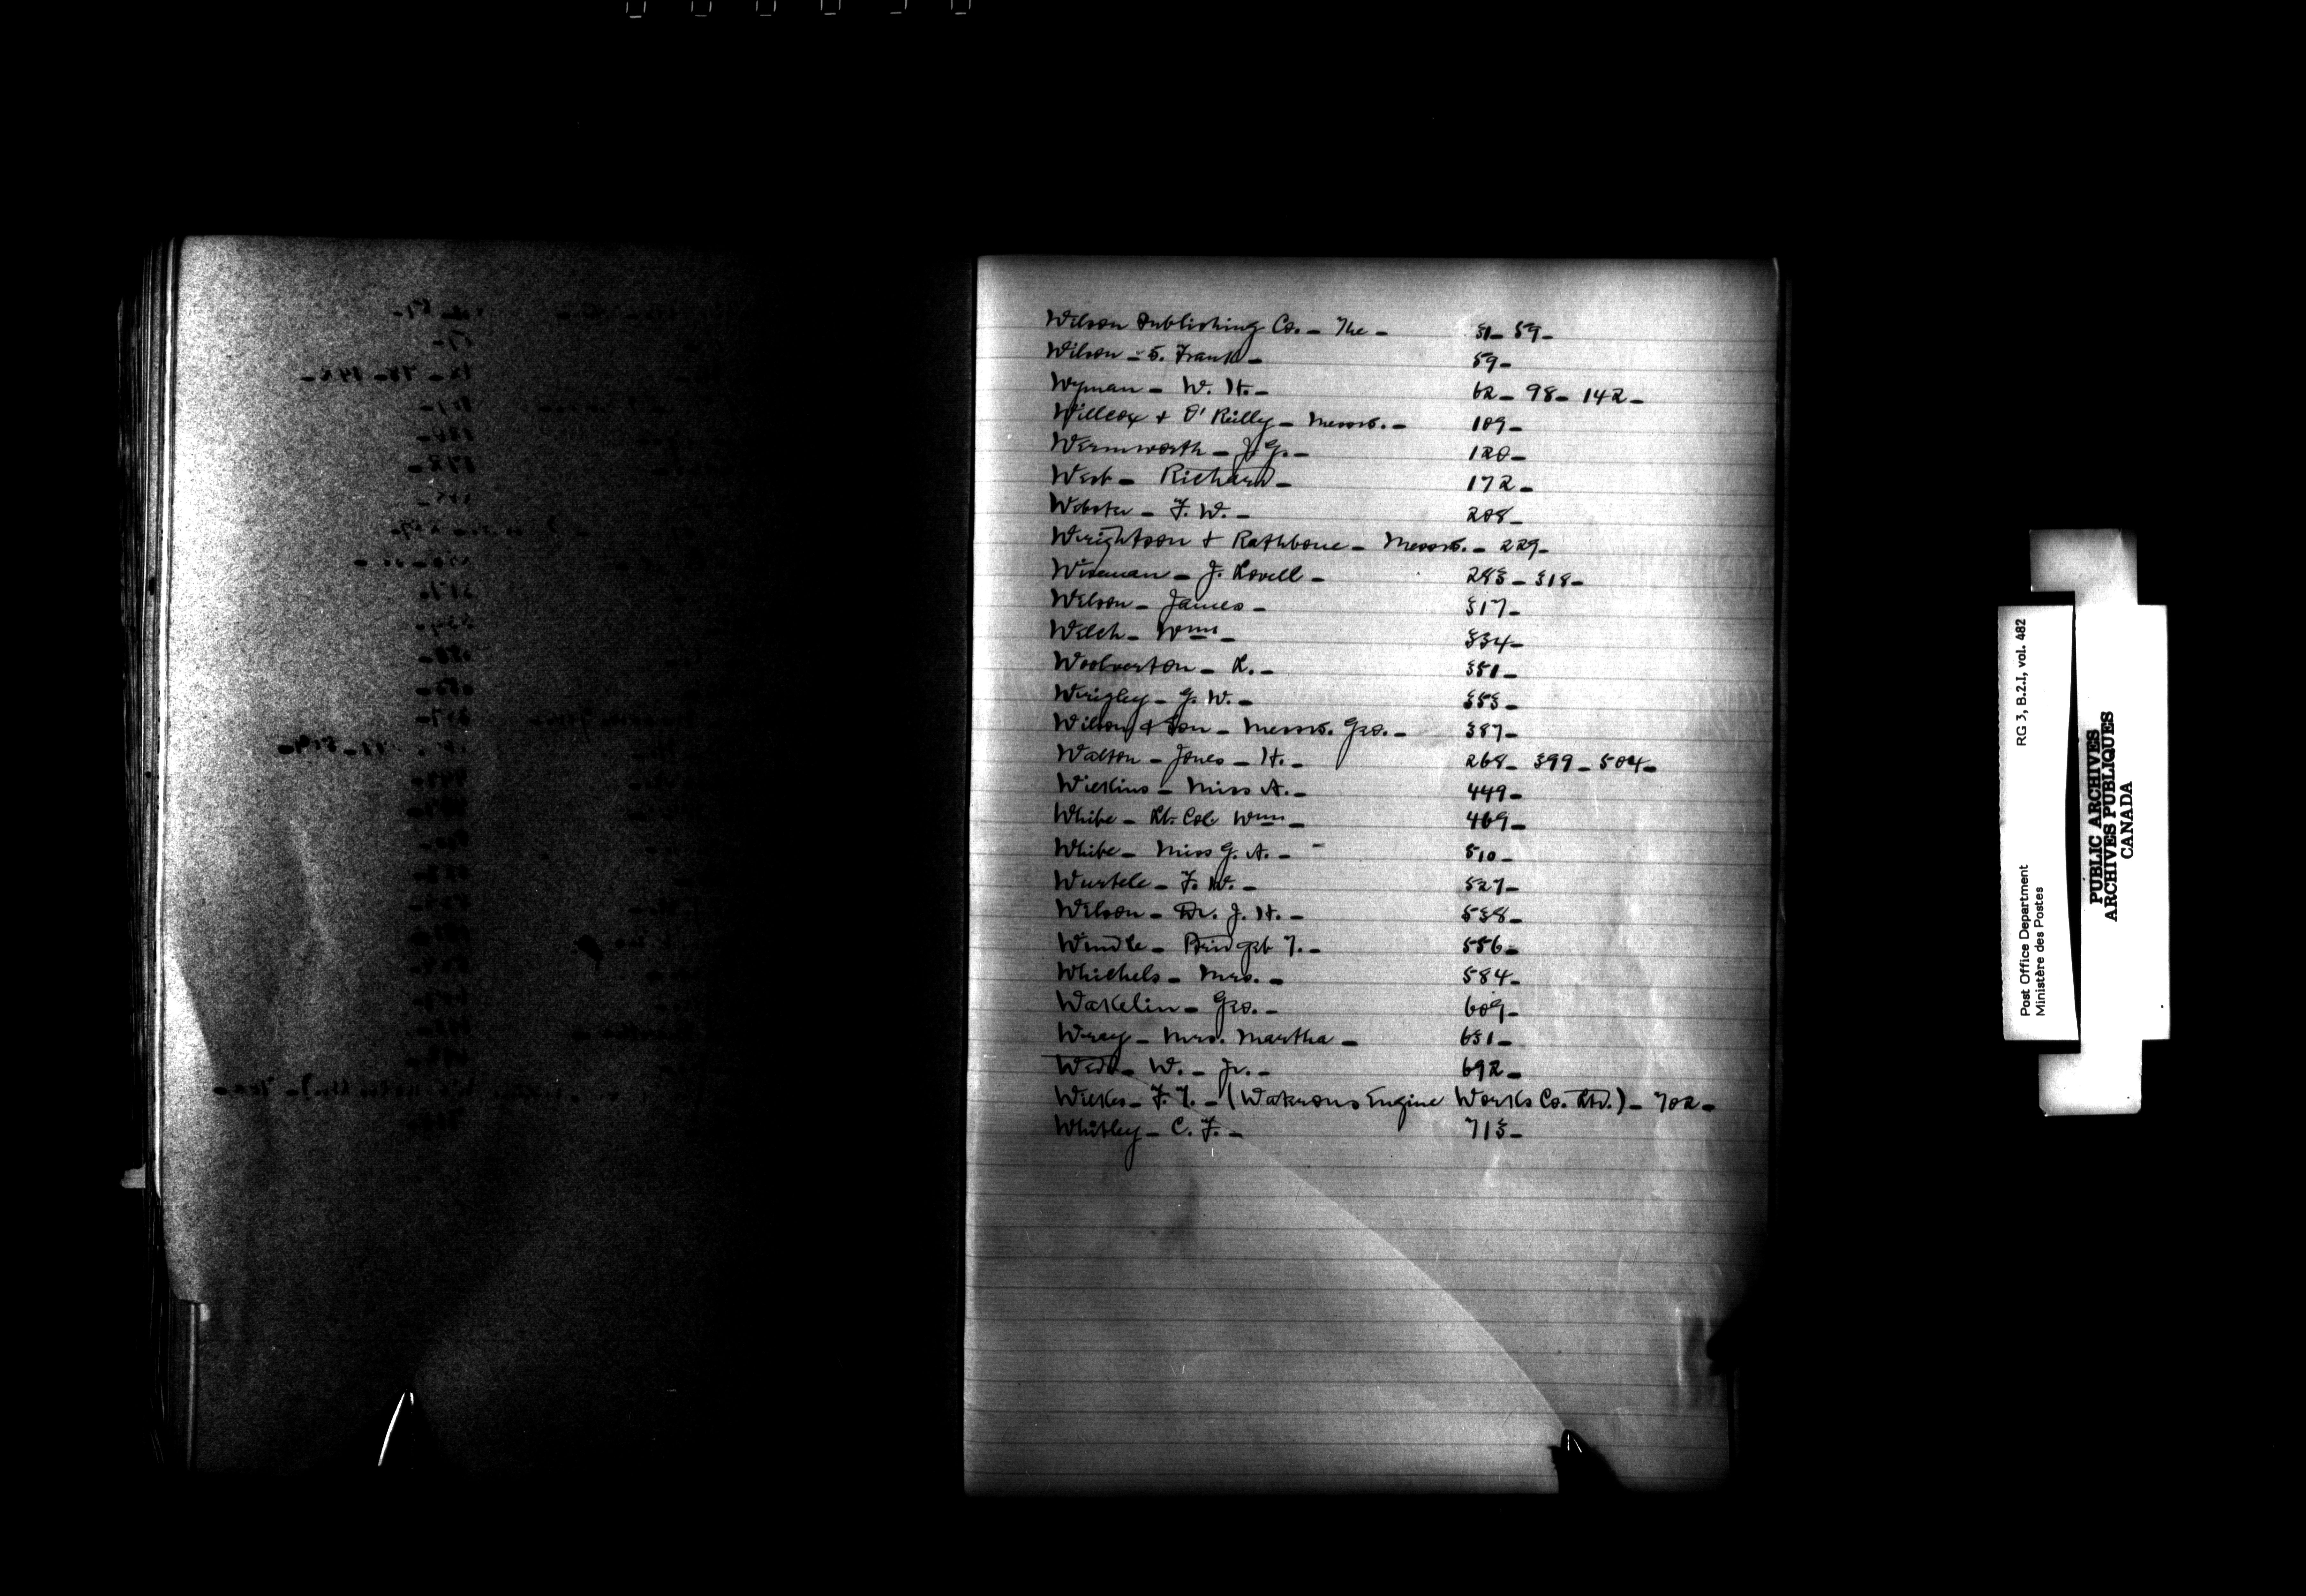 Wilson Publishing Co. - The - 31 - 59 -
Wilson - S. Frank - 59 -
Wyman - W. H. - 62 - 98 - 142 -
Willcox & O'Reilly - Messrs. - 109 -
Wermworth - J. G. - 120 -
West - Richard - 172 -
Webster - F. W. - 208 -
Wrightson & Rathbone - Messrs. - 229 -
Wiseman - J. Lovell - 283 - 318 -
Wilson - James - 317 -
Welch - Wm - 334 -
Woolverton - L. - 351 -
Wrigley - G. W. - 353 -
Wilson & Son - Messrs. Geo. - 387 -
Walton - Jones - H. - 268 - 399 - 504 -
Wilkins - Miss A. - 449 -
White - Lt. Col. Wm - 469 -
White - Miss G. A. - 510 -
Wurtele - F. W. - 527 -
Wilson - Dr. J. H. - 538 -
Windle - Bridget T. - 556 -
Whichels - Mrs. - 584 -
Wakelin - Geo. - 609 -
Wray - Mrs. Martha - 651 -
W. - Jr. - 692 -
Wilkes - F. T. - (Waterous Engine Works Co. Ltd.) - 702 -
Whitley - C. F. - 713 -
RG 3, B.2.1, vol. 482
Post Office Department
Ministère des Postes
PUBLIC ARCHIVES
ARCHIVES PUBLIQUES
CANADA